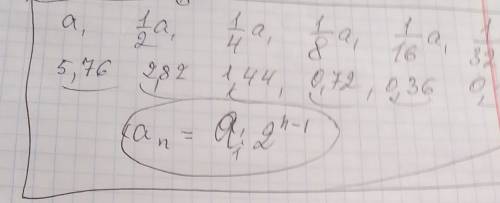 a, 1/2 a, 1/4 a, 1/8 a, 1/16 a, 1/32
5,76 2,82 1,44, 0,72, 0,36 0,
aₙ = a₁ : 2ⁿ⁻¹